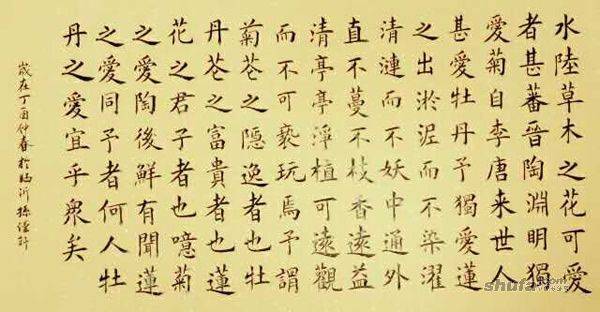 水陸草木之花可愛
者甚蕃晉陶淵明獨
愛菊自李唐来世人
甚愛牡丹予獨愛蓮
之出淤泥而不染濯
清漣而不妖中通外
直不蔓不枝香遠益
清亭亭淨植可遠觀
而不可褻玩焉予謂
菊花之隱逸者也牡
丹花之富貴者也蓮
花之君子者也噫菊
之愛陶後鮮有聞蓮
之愛同予者何人牡
丹之愛宜乎衆矣
歲在丁酉仲春於臨沂
shufa.com